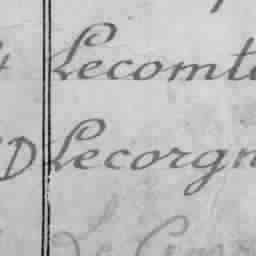 Lecomte
D Lecorgn
Le